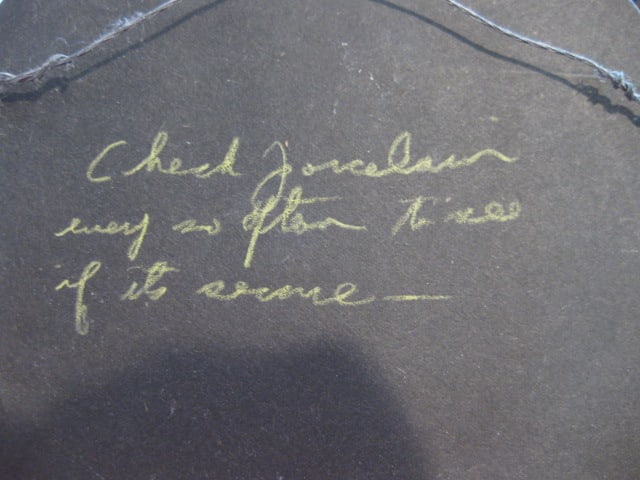 Check porcelain
every so often to see
if its secure —